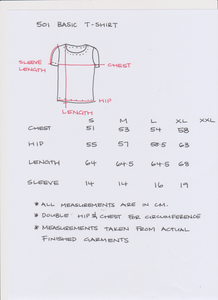 501 BASIC T-SHIRT
SLEEVE LENGTH
CHEST
HIP
LENGTH
S M L XL XXL
CHEST 51 53 54 58
HIP 55 57 58.5 63
LENGTH 64 64.5 64.5 68
SLEEVE 14 14 16 19
* ALL MEASUREMENTS ARE IN CM.
* DOUBLE HIP & CHEST FOR CIRCUMFERENCE
* MEASUREMENTS TAKEN FROM ACTUAL
FINISHED GARMENTS